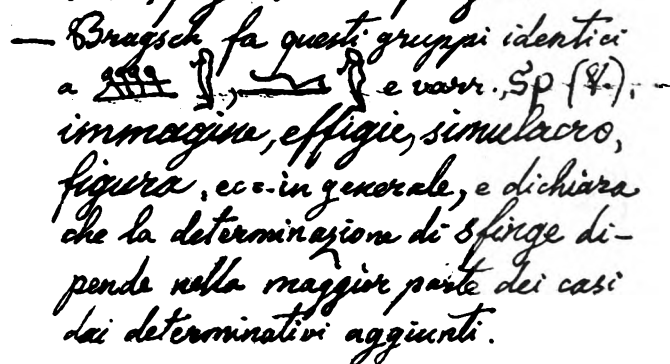 — Brugsch fa questi gruppi identici
a , e varr., Sp (V.), —
immagine, effigie, simulacro,
figura, ecc. in generale, e dichiara
che la determinazione di sfinge di-
pende nella maggior parte dei casi
dai determinativi aggiunti.